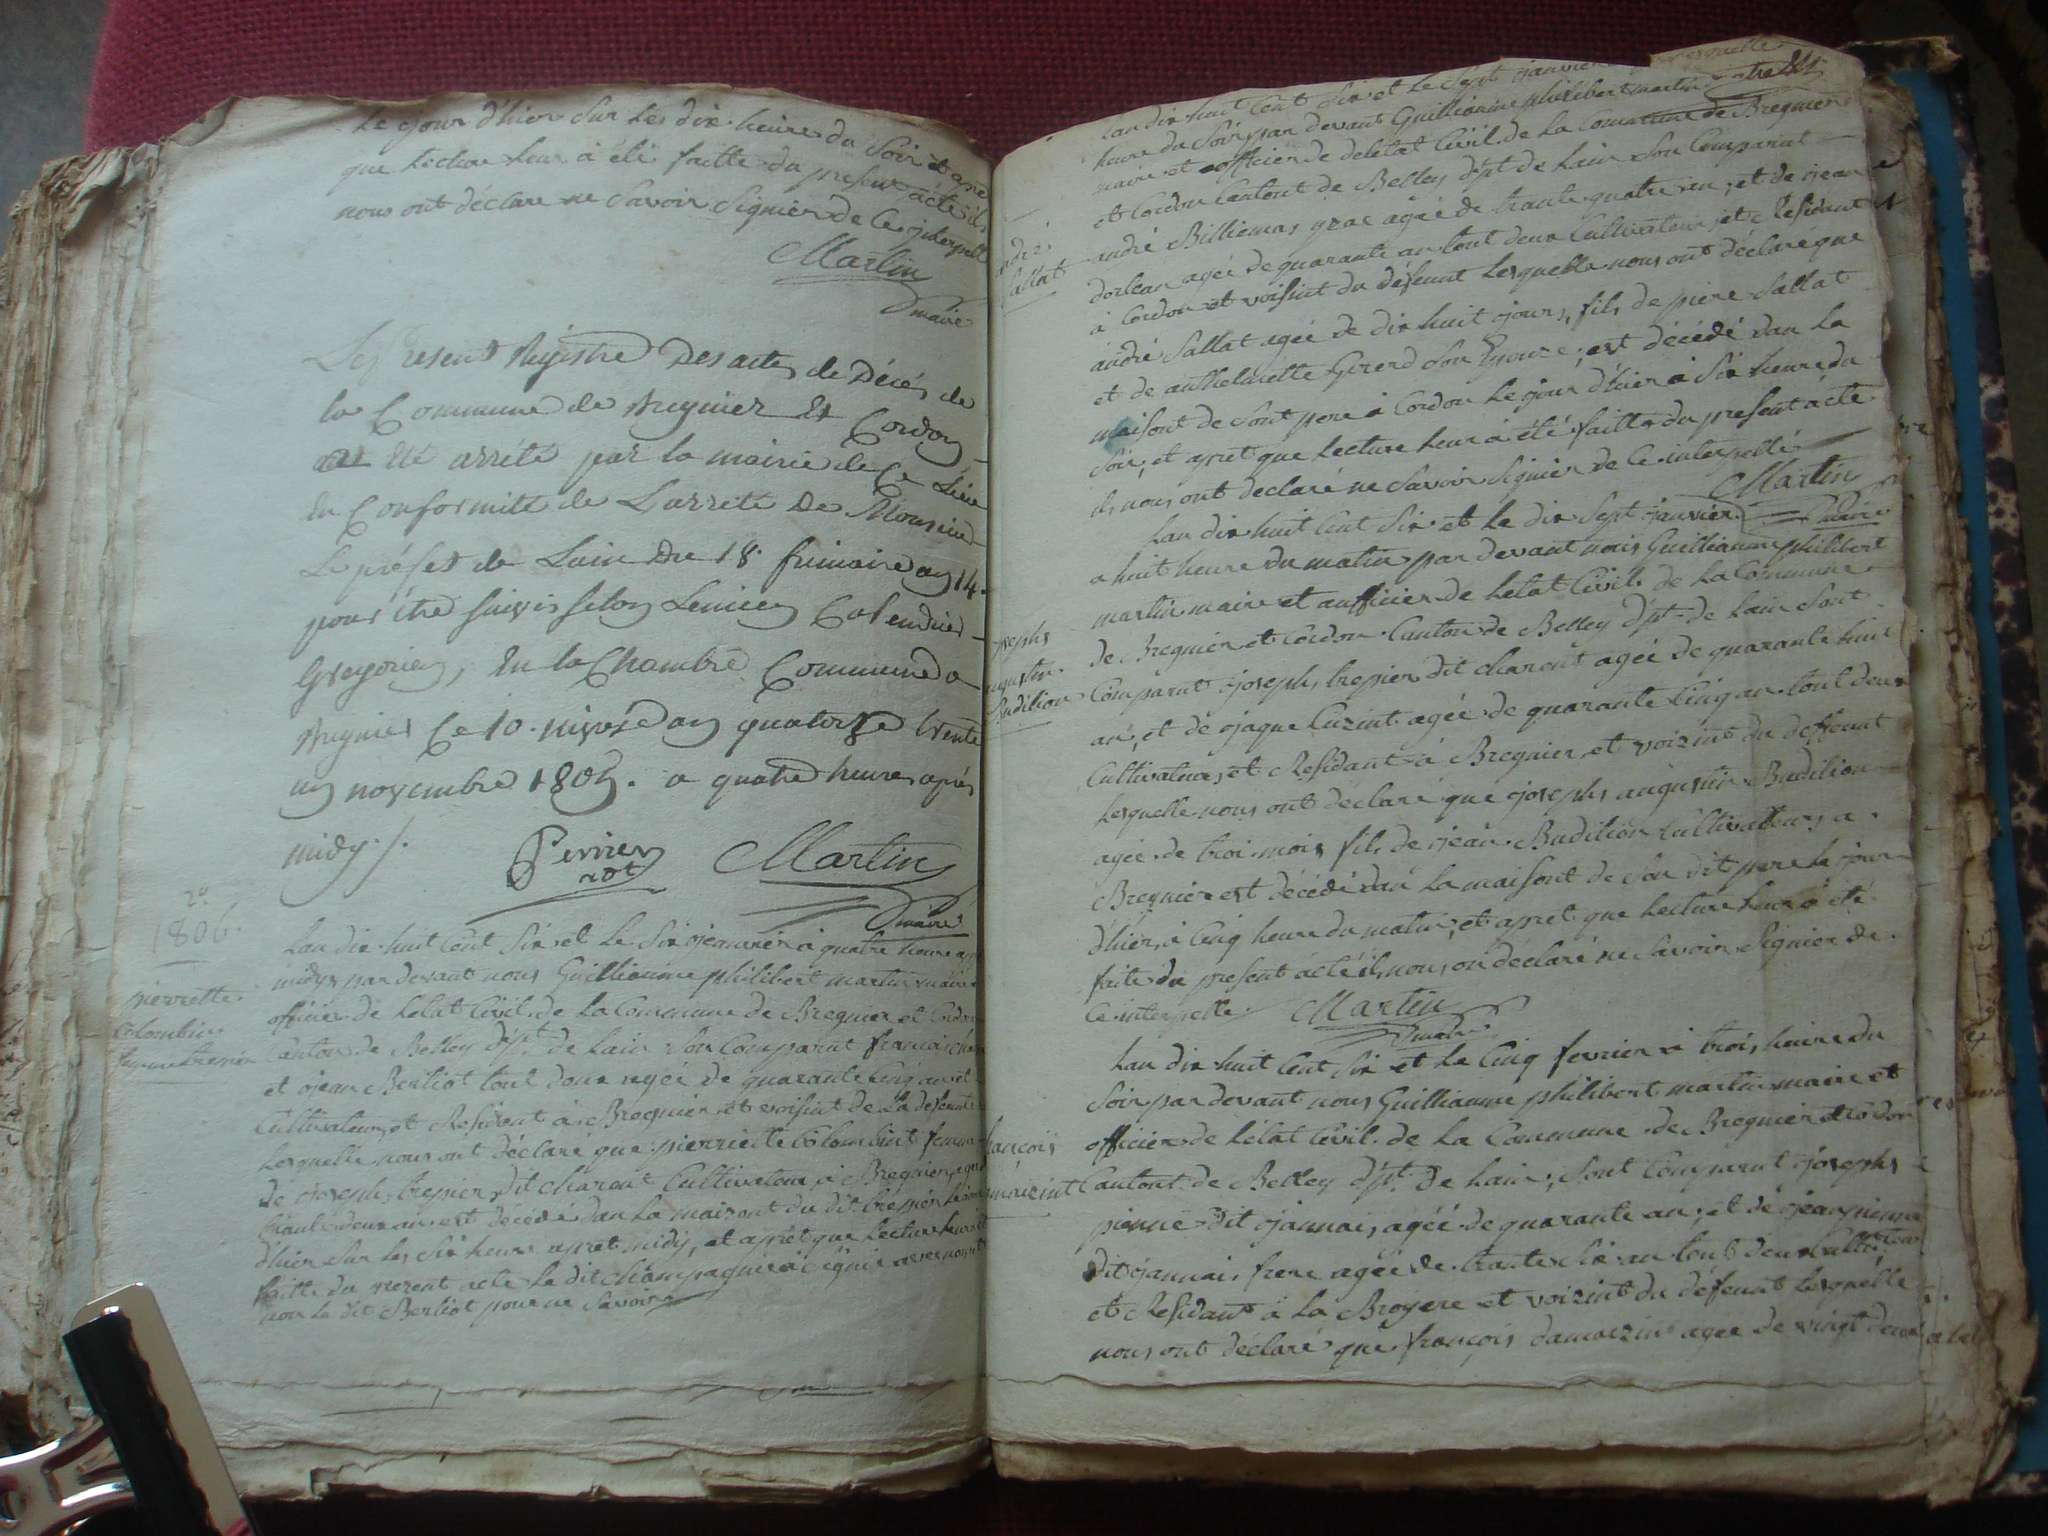 Le jour d'hier Sur Les dix heures du Soir et apre
que Lecture leur à été faitte du present acte ils
nous ont déclare ne Savoir Signier de Ce interpellé
Martin
maire
Le present Registre Des actes de Décés de
la Commune de Bregnier Et Cordon
Eté arrété par la mairie de Ce Lieu
En Conformité de L'arreté De Monsieur
Le préfet de Lain Du 18 frimaire an 14.
pour être Suivi selon Calendrier
Gregorien, En la Chambre Commune a
Bregnier Ce 10 nivose an quatorze trente
un novembre 1805. a quatre heures aprés
midy ./.
Perrier
not
Martin
maire
1806.
Lan dix huit Cent Six et le Six ojeanvier à quatre heure
midy par devant nous Guilliaume philibert martin maire
officier de Letat Civil de la Commune de Bregnier et Cordon
Canton de Belley dpt de Lain Son Comparut francois
et ojean Berliot tout deux agée de quarante Cinq an et
Cultivateur et Résident à Bregnier et voisint de La défunte
Lesquelle nous ont déclaré que pierriette Colombint femme
de ojoseph trepier dit charent Cultivateur à Bregnier agée
deux an est décédé dan La maizont du dit trépier Le jour
d'hier Sur les Six heure apret midy, et aprét que Lecture leur à été
faitte du present acte Le dit Champagnié à Signié avec nous et
non Le dit Berliot pour ne Savoir
pierrette
Colombin
femme trepier
Lan dix huit Cent Six et le Sept ojanvier
heure du Soir par devant Guilliaume philibert martin
maire et officier de Letat Civil de La Commune de Bregnier
et Cordon Cantont de Belley dpt de Lain Son Comparut
andré Billiemas agée de trante quatre an, et de ojean
dorlean agée de quarante an tout deux Cultivateur et Résidant
à Cordon et voisint du défeunt Lesquelle nous ont déclaré que
andré Sallat agée de dix huit ojours, fils de piere Sallat
et de anthelmette Girerd Son Epouze, est décédé dan La
maisont de Sont pere à Cordon Le jour d'hier à Six heure du
Soir, et apret que Lecture leur à été faitte du present acte
ils nous ont declaré ne Savoir Signier de Ce interpellé
Martin
maire
andré
Sallat
Lan dix huit Cent Six et le dix Sept ojanvier
a huit heure du matin par devant nous Guilliaume philibert
martin maire et aufficier de Letat Civil de La Commune
de Bregnier et Cordon Canton de Belley dpt de Lain Sont
Comparut ojoseph trepier dit charent agée de quarante huit
an, et de ojaque Cuzint agée de quarante Cinq an tout deux
Cultivateur et Résidant à Bregnier et voizint du deffeunt
Lesquelle nous ont déclaré que ojosephs augustin Budilion
agée de troi mois fils de ojean Budilion Cultivateur a
Bregnier est décédé dan La maisont de Son dit pere Le jour
d'hier, à Cinq heure du matin, et apret que Lecture leur à été
faite du present acte ils nous on déclaré ne Savoir Signier de
Ce interpelle
Martin
maire
josephs
augustin
Budilion
Lan dix huit Cent Six et Le Cinq fevrier à trois heure du
Soir par devant nous Guilliaume philibert martin maire et
officier de Létat Civil de La Commune de Bregnier et Cordon
Cantont de Belley dpt de Lain, Sont Comparut ojosephs
dit ojannais, agée de quarante an; et de ojean
dit ojannais frere agée de trante Six an tout deux
et Résidant à La Broyere et voizint du défeunt Lesquelle
nous ont déclaré que françois damaizin agée de vingt deux
francois
damaizint